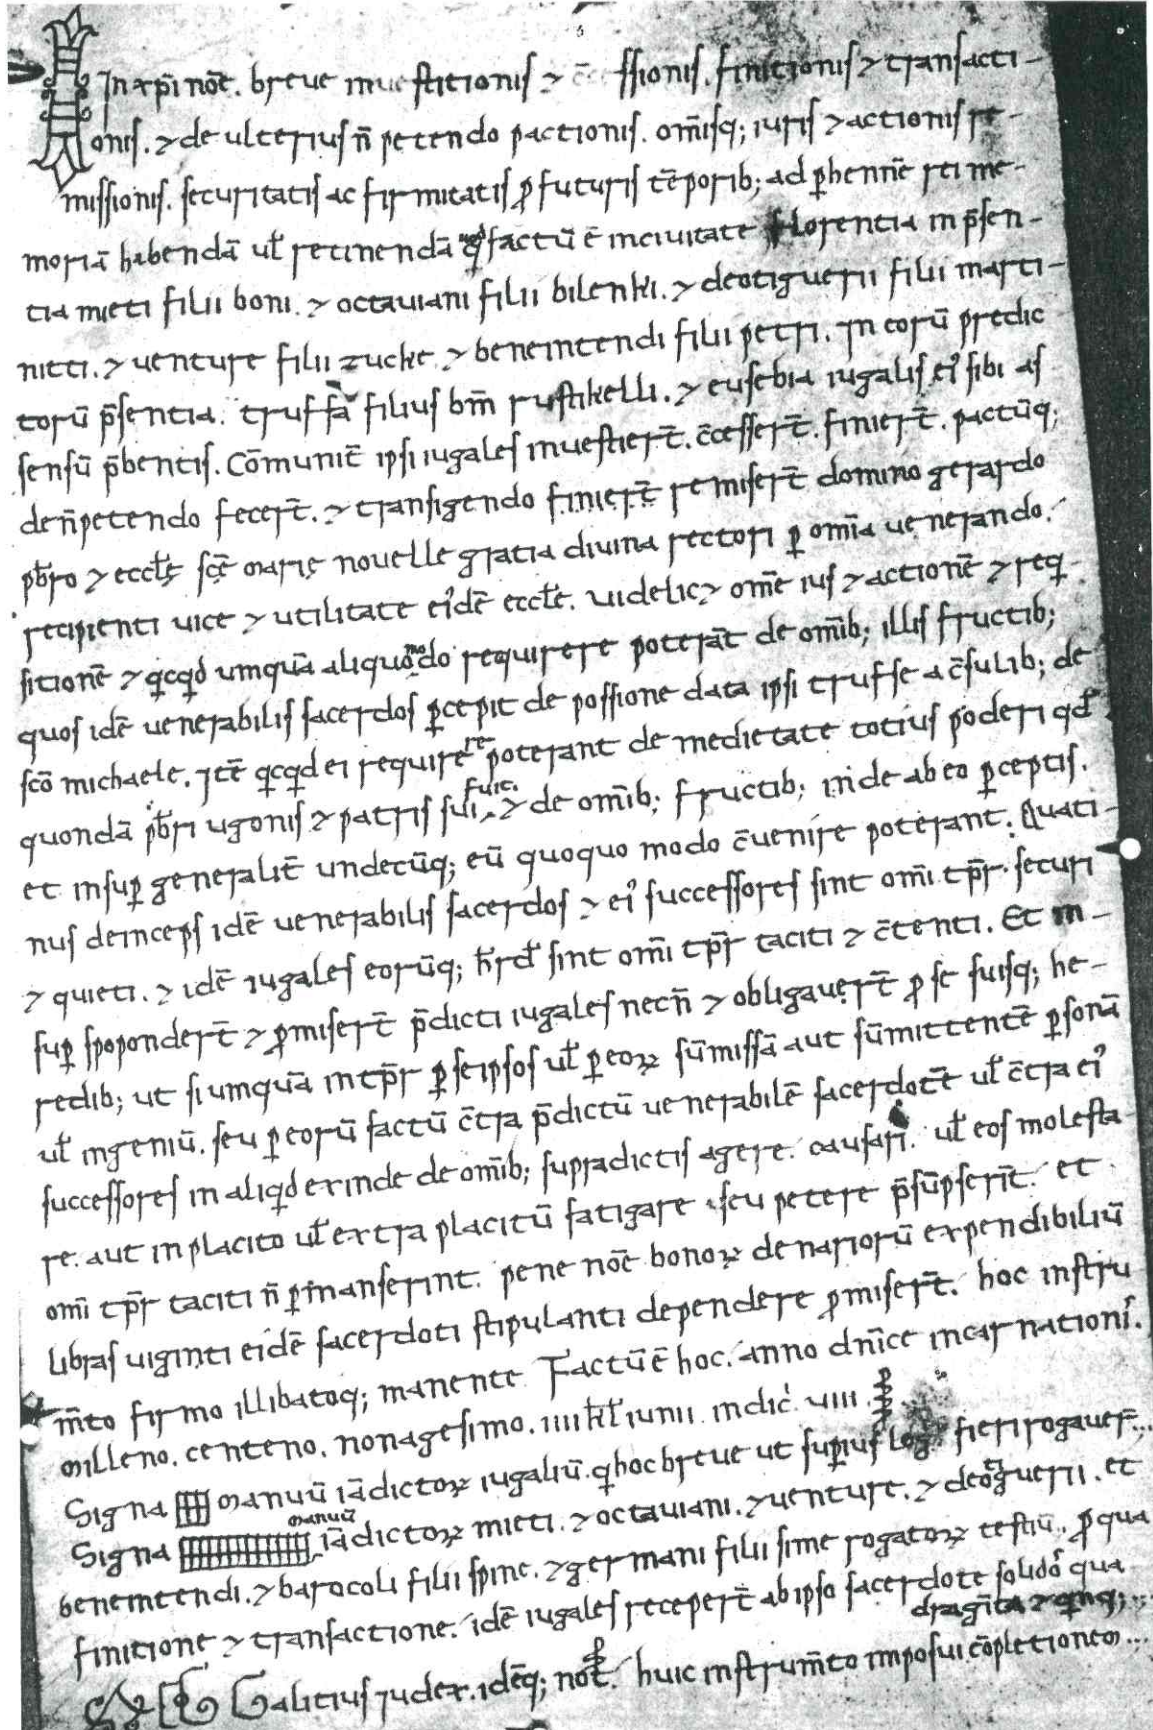 In xp̄i nōe. breue inuestitionis ⁊ c̄cessionis. finitionis ⁊ transacti-
onis. ⁊ de ulterius n̄ petendo pactionis. om̄isq; iuris ⁊ actionis re-
missionis. securitatis ac firmitatis ꝓ futuris tēporib; ad ꝑhennē rei me-
moriā habendā ul̄ retinendā factū ē in ciuitate florentia in p̄sen-
tia mieti filii boni. ⁊ octauiani filii bilenki. ⁊ deotiguerii filii marti-
netti. ⁊ uenture filii zucke. ⁊ beneintendi filii petri. In eorū predic
torū p̄sentia. truffa filius bm̄ rustikelli. ⁊ eusebia iugalis ei᾽ sibi as
sensū p̄bentis. Cōmunit̄ ipsi iugales inuestier̄t. c̄cesser̄t. finier̄t. pactūq;
de n̄ petendo fecer̄t. ⁊ transigendo finier̄t remiser̄t domino gerardo
p̄bro ⁊ eccl̄ę sc̄ę marię nouelle gratia diuina rectori ꝑ om̄ia uenerando.
recipienti uice ⁊ utilitate ei᾽dē eccl̄e. uidelic⁊ om̄e ius ⁊ actionē ⁊ req
sitionē ⁊ qcqd umquā aliquomodo requirere poterāt de om̄ib; illis fructib;
quos idē uenerabilis sacerdos ꝑcepit de possione data ipsi truffe a c̄sulib; de
sc̄o michaele. Itē qcqd ei requirere poterant de medietate totius poderi qd̄
quondā p̄bri ugonis ⁊ patris sui fuit. ⁊ de om̄ib; fructib; inde ab eo ꝑceptis.
et insuꝑ generalit̄ undecūq; eū quoquo modo c̄uenire poterant. Quati-
nus deinceps idē uenerabilis sacerdos ⁊ ei᾽ successores sint om̄i tp̄r securi
⁊ quieti. ⁊ idē iugales eorūq; h̄rd̄ sint om̄i tp̄r taciti ⁊ c̄tenti. Et in-
suꝑ sponder̄t ⁊ ꝓmiser̄t p̄dicti iugales necn̄ ⁊ obligauer̄t ꝓ se suisq; he-
redib; ut si umquā in tp̄r ꝑ se ipsos ul̄ ꝑ eoꝝ sūmissā aut sūmittentē ꝑsonā
ul̄ ingeniū. seu ꝑ eorū factū c̄tra p̄dictū uenerabilē sacerdotē ul̄ c̄tra ei᾽
successores in aliqd exinde de om̄ib; supradictis agere. causari. ul̄ eos molesta
re. aut in placito ul̄ extra placitū fatigare. seu petere p̄sūpserīt. et
om̄i tp̄r taciti n̄ ꝑmanserint. pene nōe bonoꝝ denariorū expendibiliū
libras uiginti eidē sacerdoti stipulanti dependere ꝓmiser̄t. hoc instru
m̄to firmo illibatoq; manente. Factū ē hoc. anno dn̄ice incarnationis.
milleno. centeno. nonagesimo. iiii kl̄ iunii. indic̄. uiii.
Signa manuū iādictoꝝ iugaliū. q hoc breue ut suꝑius leg̃ fieri rogauer̄...
Signa manuū iādictoꝝ mieti. ⁊ octauiani. ⁊ uenture. ⁊ deotiguerii. et
beneintendi. ⁊ barocoli filii spine. ⁊ germani filii sime rogatoꝝ testiū. ꝓ qua
finitione ⁊ transactione. idē iugales receper̄t ab ipso sacerdote solidos qua
draginta ⁊ qnq;...
Galitius iudex. idēq; not̄. huic instrum̄to imposui cōpletionem...